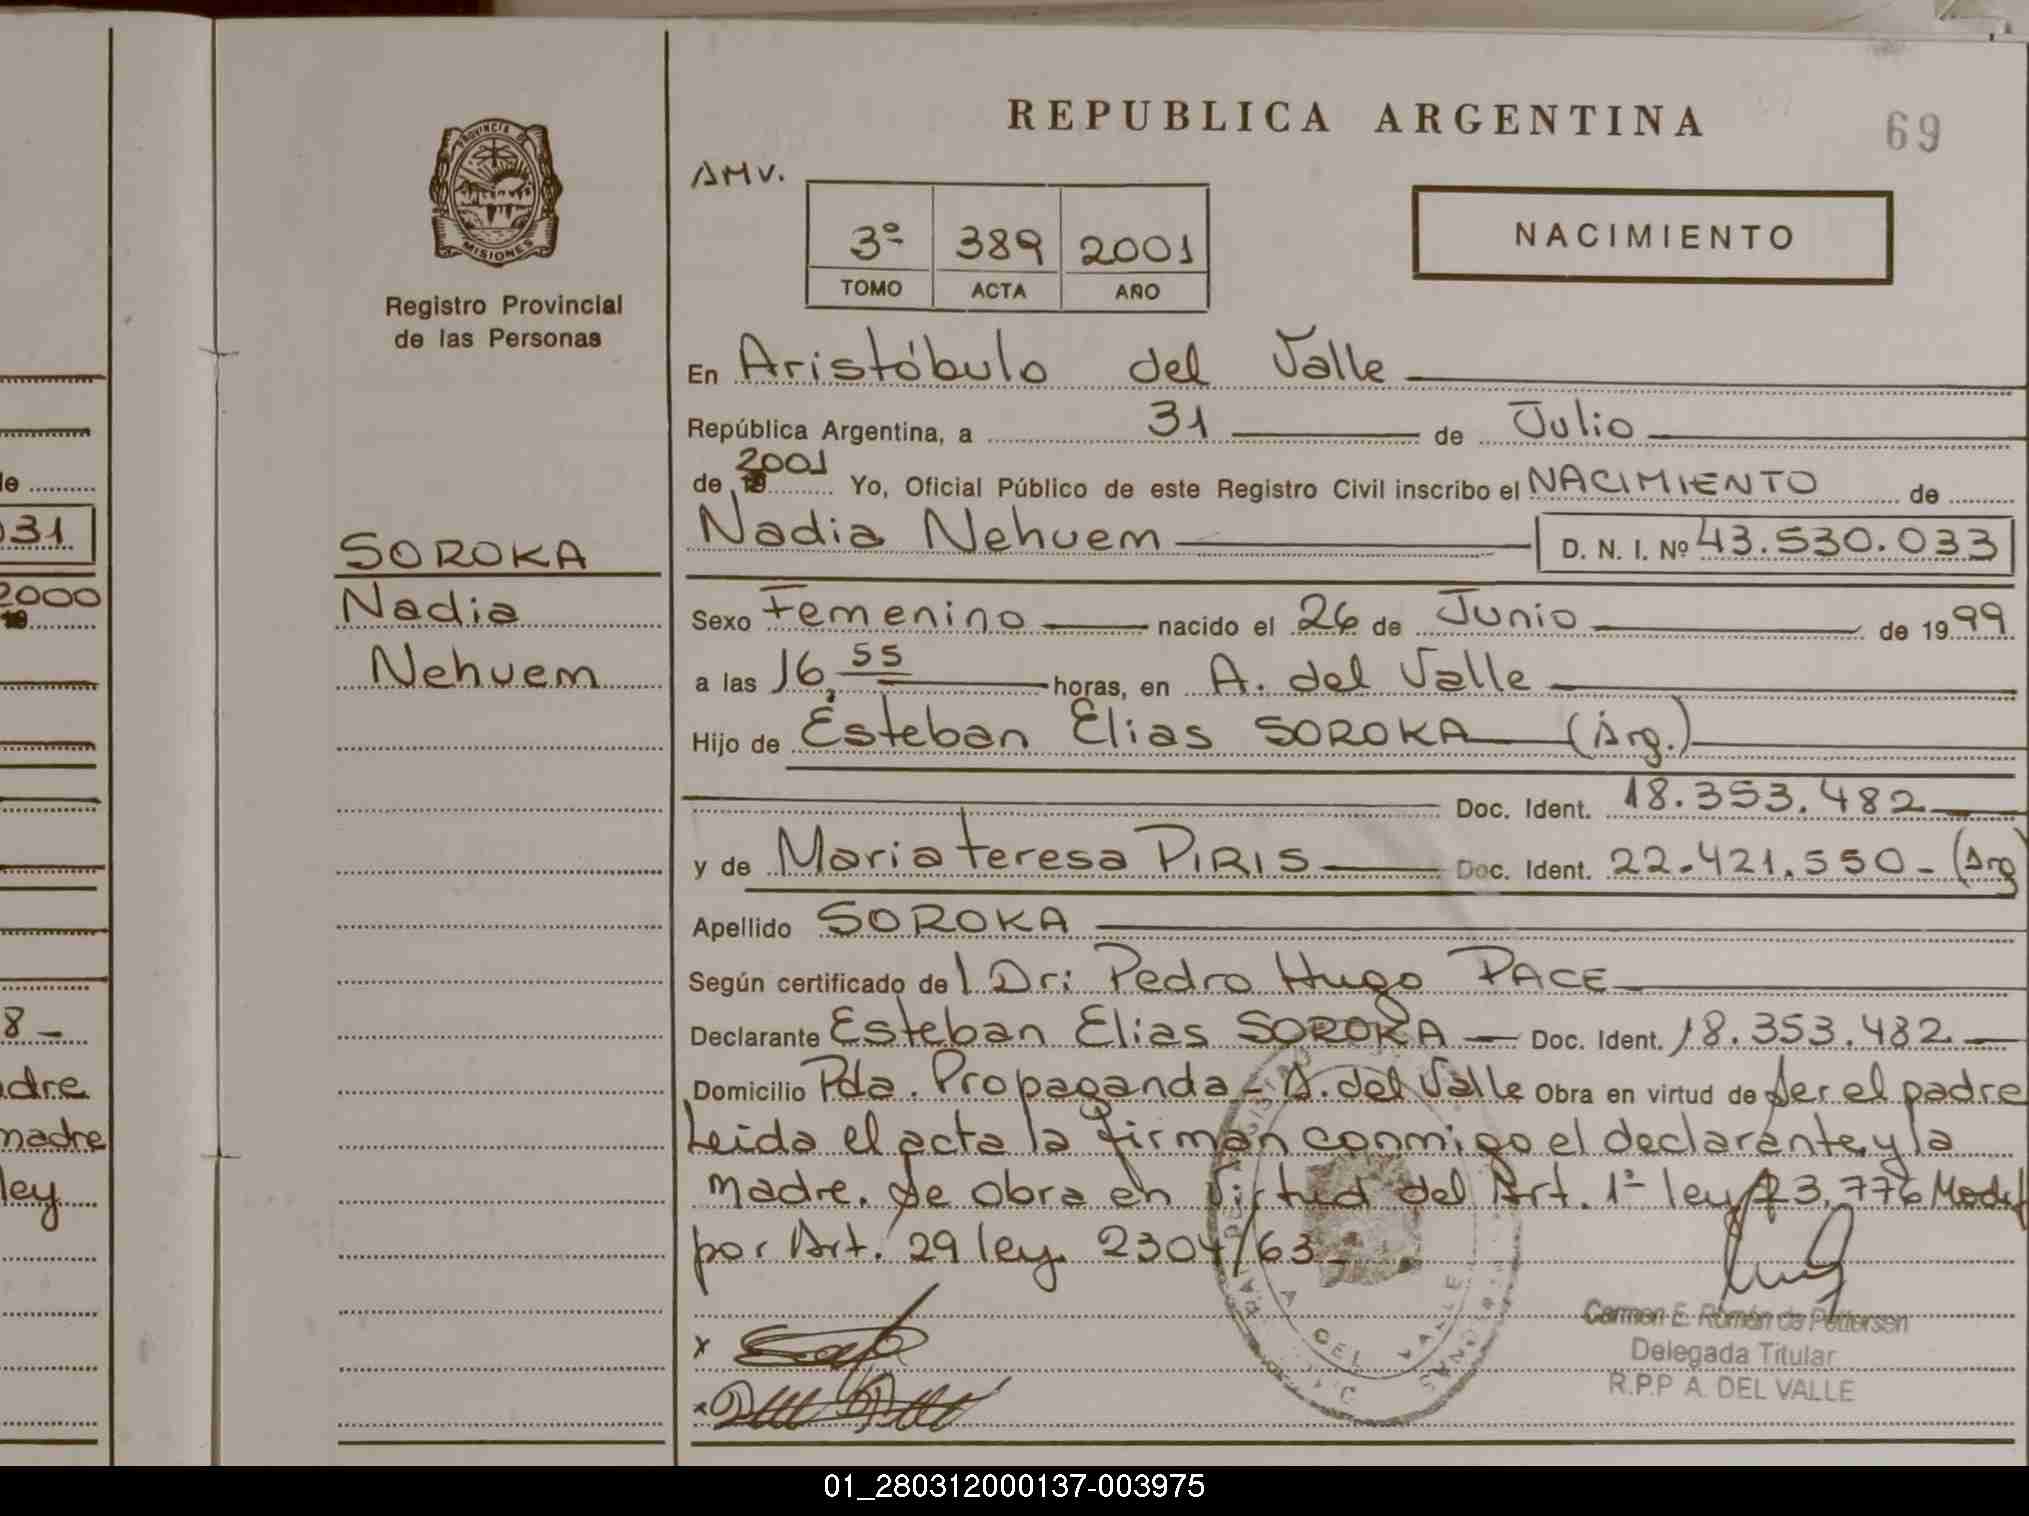 REPUBLICA ARGENTINA
69
PROVINCIA DE
MISIONES
Registro Provincial
de las Personas
AMV.
3º 389 2001
TOMO ACTA AÑO
NACIMIENTO
En Aristóbulo del Valle
República Argentina, a 31 de Julio
de 2001 Yo, Oficial Público de este Registro Civil inscribo el NACIMIENTO de
Nadia Nehuem D. N. I. Nº 43.530.033
SOROKA
Nadia
Nehuem
Sexo Femenino nacido el 26 de Junio de 1999
a las 16,55 horas, en A. del Valle
Hijo de Esteban Elias SOROKA (Arg.)
Doc. Ident. 18.353.482
y de Maria teresa PIRIS Doc. Ident. 22.421.550 - (Arg
Apellido SOROKA
Según certificado de l Dr: Pedro Hugo PACE
Declarante Esteban Elias SOROKA Doc. Ident. 18.353.482
Domicilio Pda. Propaganda - A. del Valle Obra en virtud de ser el padre
Leida el acta la firman conmigo el declarante y la
madre. Se obra en virtud del Art. 1º ley 23.776 Modif
por Art. 29 ley 2304/63
x
x
A. DEL VALLE
Carmen E. Román de Pettersen
Delegada Titular
R.P.P A. DEL VALLE
031
2000
8 -
adre
madre
ley
01_280312000137-003975